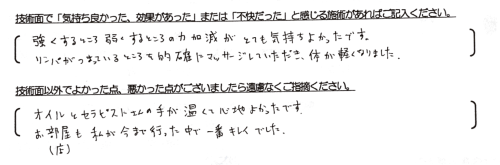 技術面で「気持ち良かった、効果があった」または「不快だった」と感じる施術があればご記入ください。
強くするところ 弱くするところの力加減が とても気持ちよかったです。
リンパがつまっているところを的確にマッサージしていただき、体が軽くなりました。
技術面以外でよかった点、悪かった点がございましたら遠慮なくご指摘ください。
オイルとセラピストさんの手が温くて心地よかったです。
お部屋も 私が今まで行った中で一番キレイでした。
(店)